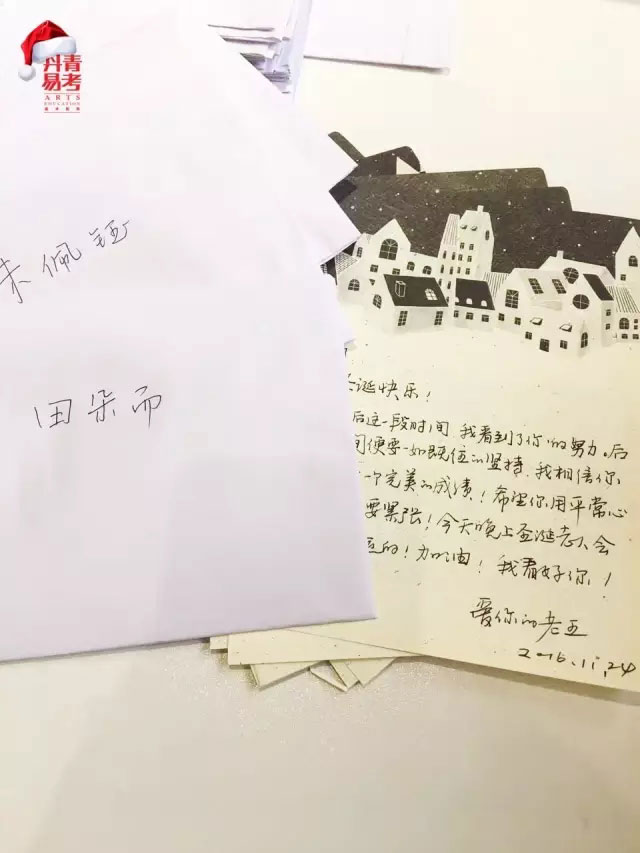 丹青
易考
ARTS
EDUCATION
佩钰
田朵而
诞快乐！
后这一段时间 我看到了你的努力。后
间便要一如既往的坚持，我相信你
一个完美的成绩！希望你用平常心
要紧张！今天晚上圣诞老人会
的！加油！我看好你！
爱你的老
2016.11.24